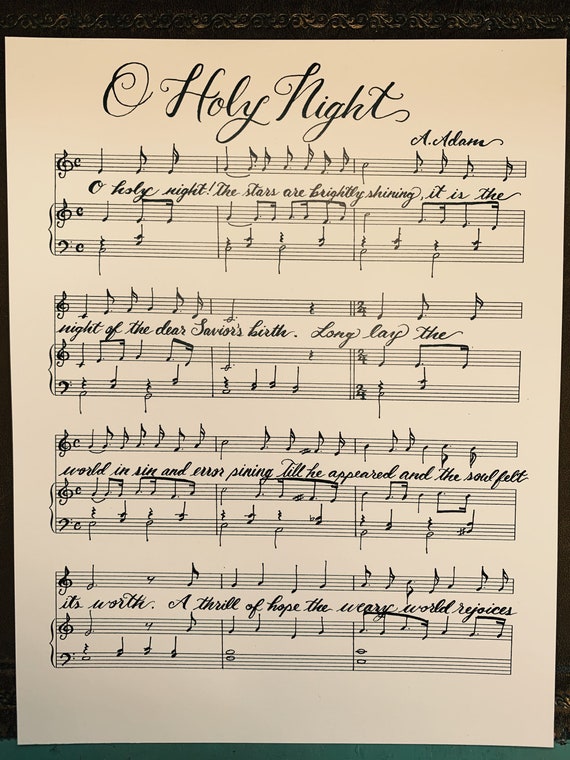 O Holy Night
A. Adam
O holy night! the stars are brightly shining, it is the
night of the dear Savior's birth. Long lay the
2/4
world in sin and error pining till he appeared and the soul felt
its worth. A thrill of hope the weary world rejoices